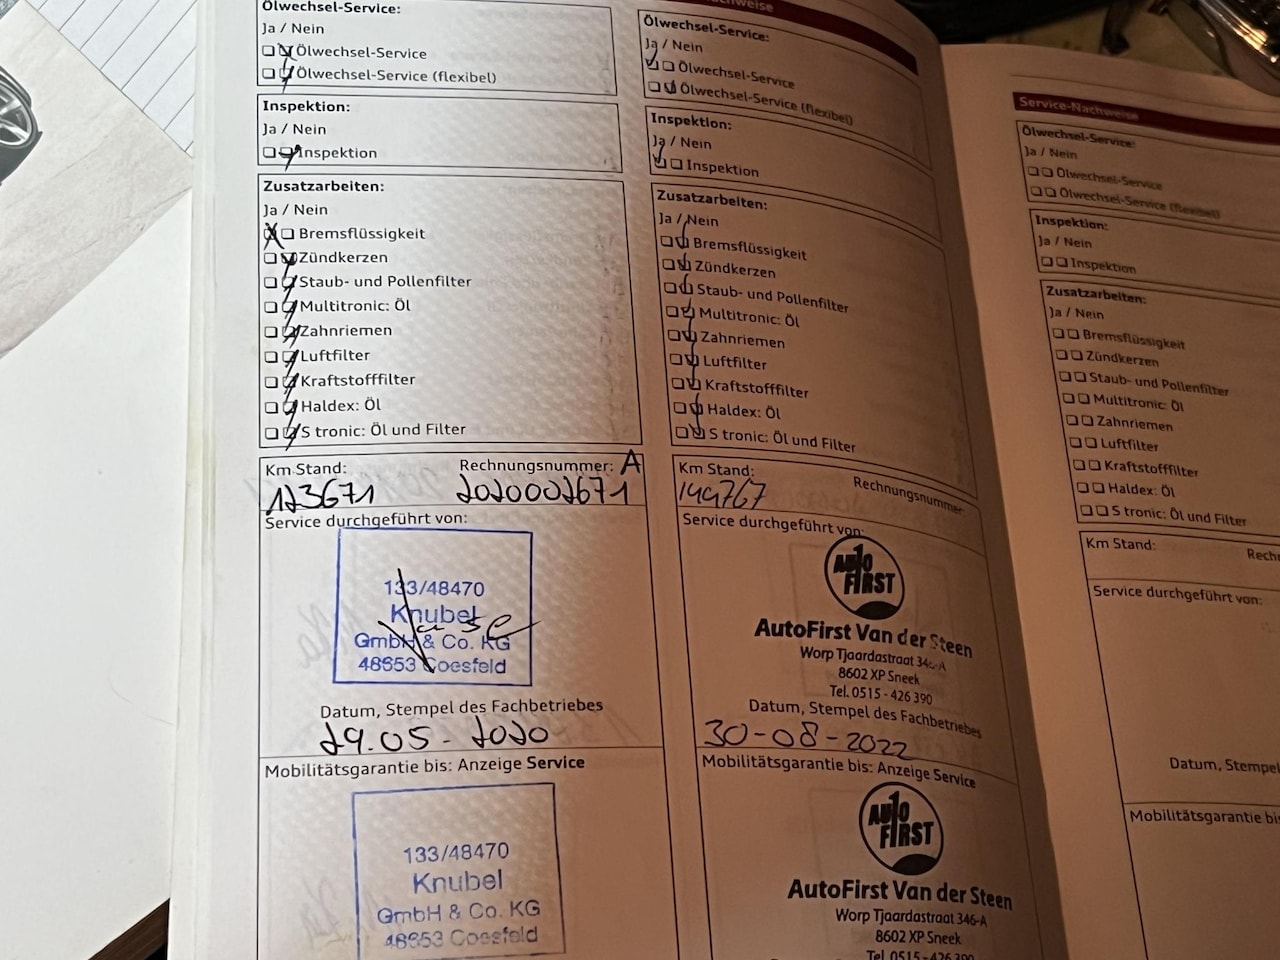 Ölwechsel-Service:
Ja / Nein
Ölwechsel-Service
Ölwechsel-Service (flexibel)
Inspektion:
Ja / Nein
Inspektion
Zusatzarbeiten:
Ja / Nein
Bremsflüssigkeit
Zündkerzen
Staub- und Pollenfilter
Multitronic: Öl
Zahnriemen
Luftfilter
Kraftstofffilter
Haldex: Öl
S tronic: Öl und Filter
Km Stand: Rechnungsnummer: A
123671 2020002671
Service durchgeführt von:
133/48470
Knubel
GmbH & Co. KG
48653 Coesfeld
Datum, Stempel des Fachbetriebes
29.05-2020
Mobilitätsgarantie bis: Anzeige Service
133/48470
Knubel
GmbH & Co. KG
48653 Coesfeld
Ölwechsel-Service:
Ja / Nein
Ölwechsel-Service
Ölwechsel-Service (flexibel)
Inspektion:
Ja / Nein
Inspektion
Zusatzarbeiten:
Ja / Nein
Bremsflüssigkeit
Zündkerzen
Staub- und Pollenfilter
Multitronic: Öl
Zahnriemen
Luftfilter
Kraftstofffilter
Haldex: Öl
S tronic: Öl und Filter
Km Stand: Rechnungsnummer:
144767
Service durchgeführt von:
AUTO
FIRST
AutoFirst Van der Steen
Worp Tjaardastraat 346-A
8602 XP Sneek
Tel. 0515 - 426 390
Datum, Stempel des Fachbetriebes
30-08-2022
Mobilitätsgarantie bis: Anzeige Service
AUTO
FIRST
AutoFirst Van der Steen
Worp Tjaardastraat 346-A
8602 XP Sneek
Tel. 0515 - 426 390
Service-Nachweise
Ölwechsel-Service:
Ja / Nein
Ölwechsel-Service
Ölwechsel-Service (flexibel)
Inspektion:
Ja / Nein
Inspektion
Zusatzarbeiten:
Ja / Nein
Bremsflüssigkeit
Zündkerzen
Staub- und Pollenfilter
Multitronic: Öl
Zahnriemen
Luftfilter
Kraftstofffilter
Haldex: Öl
S tronic: Öl und Filter
Km Stand: Rechn
Service durchgeführt von:
Datum, Stempel
Mobilitätsgarantie bis